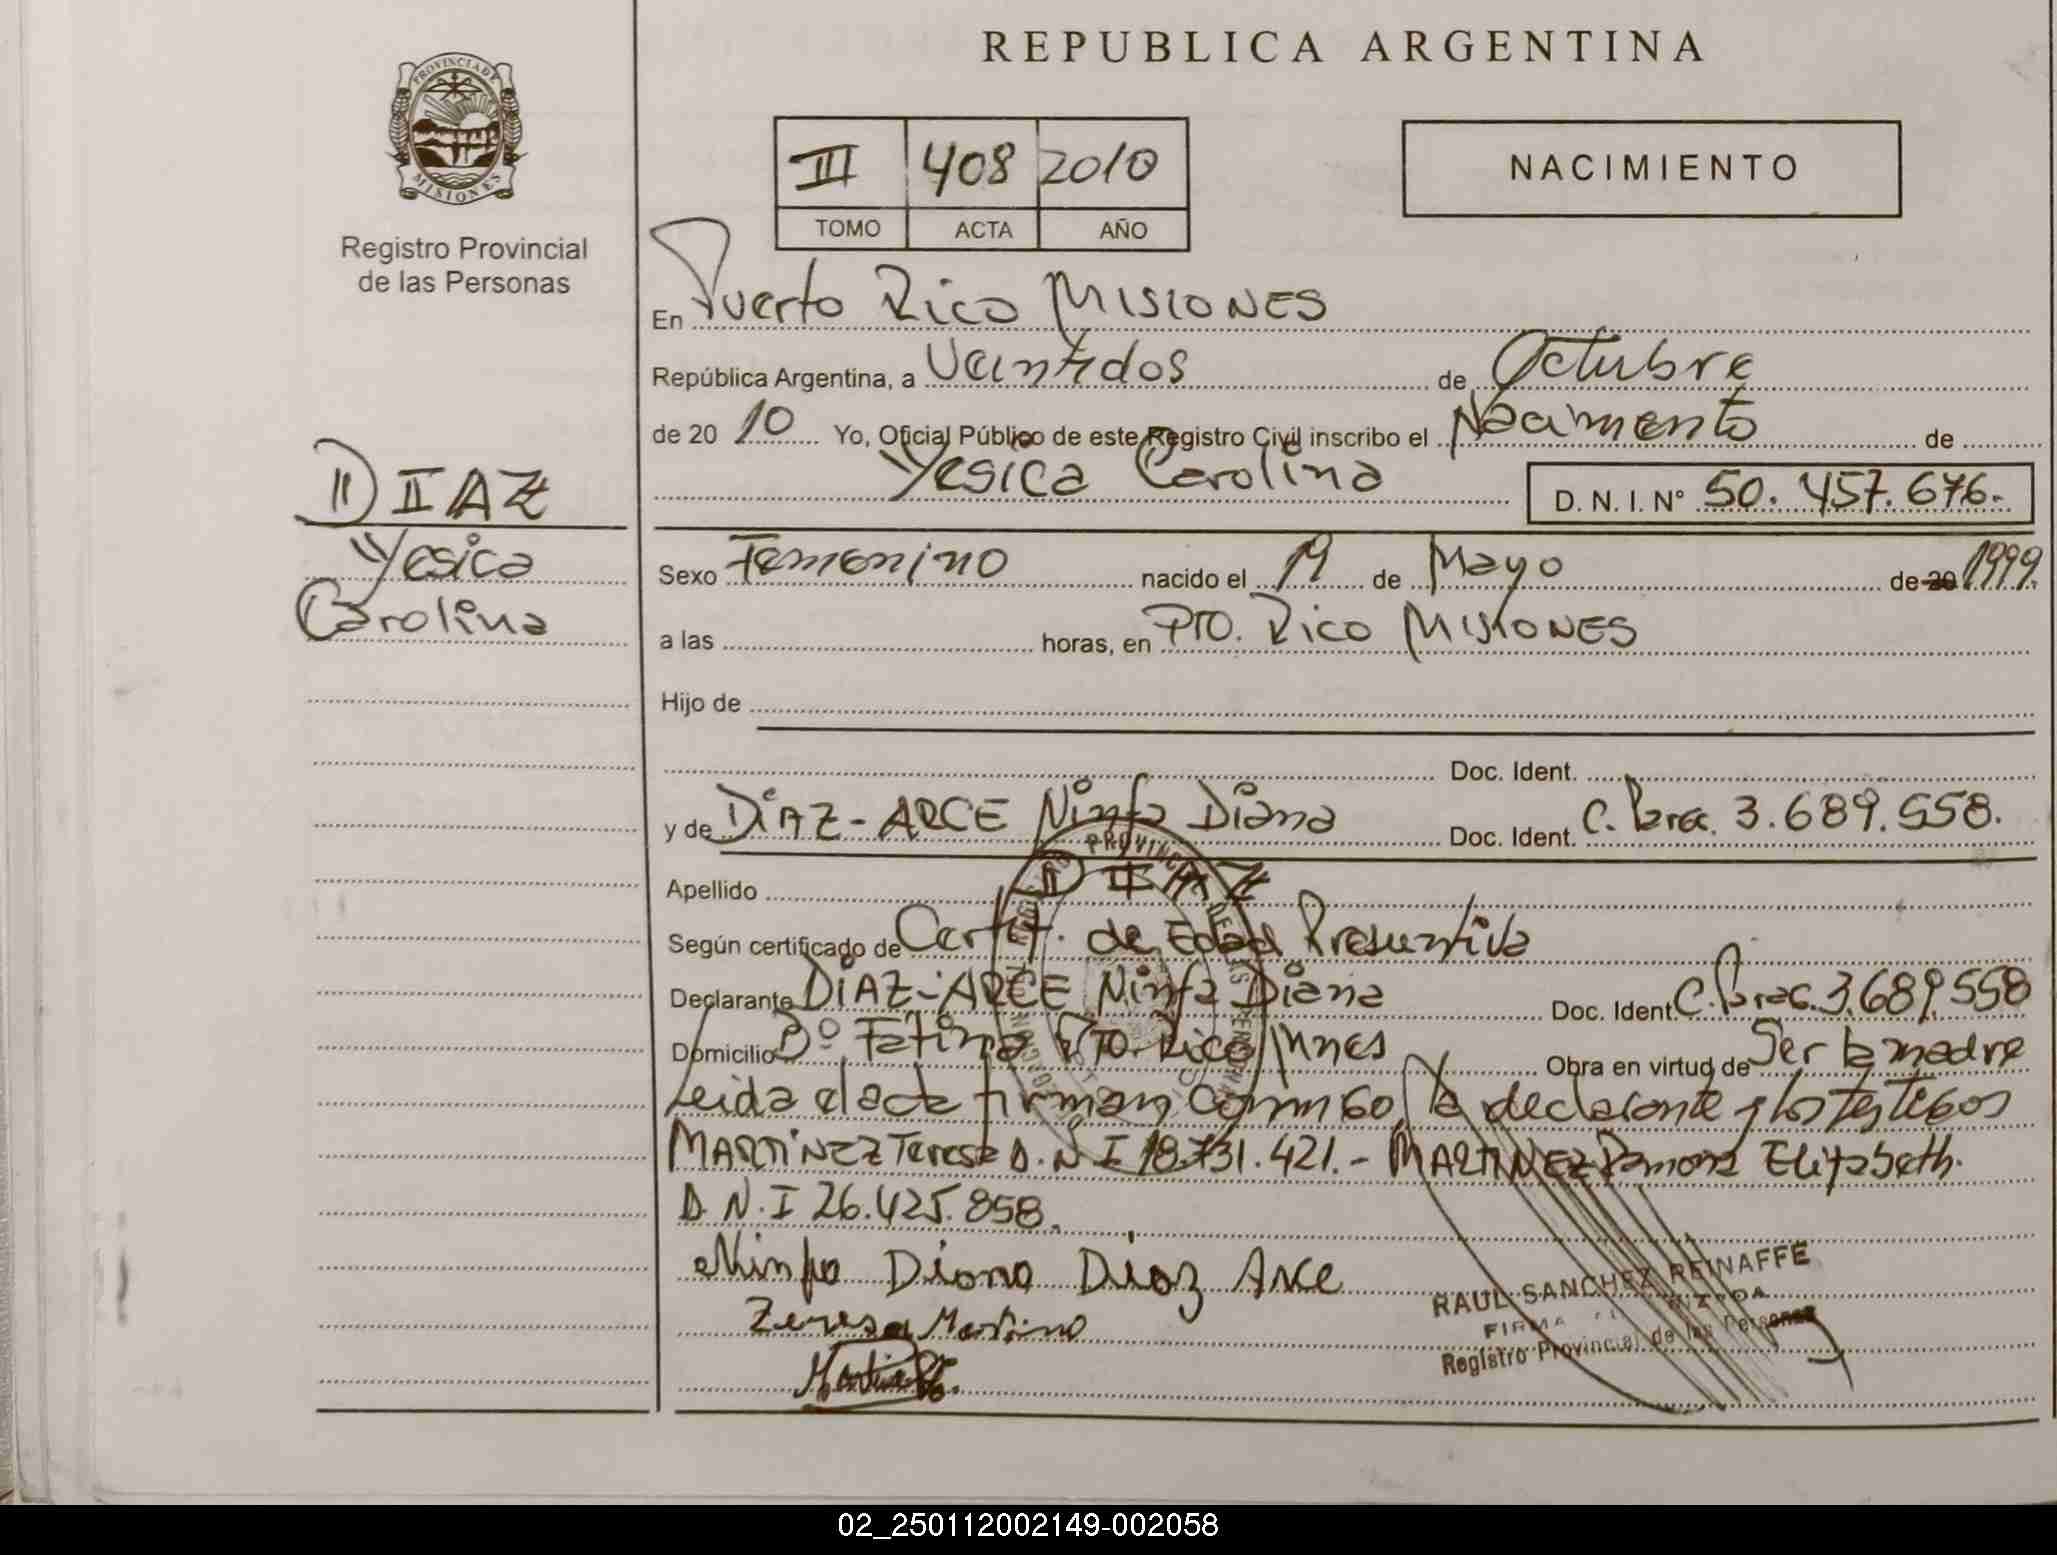 REPUBLICA ARGENTINA
PROVINCIA DE
MISIONES
Registro Provincial
de las Personas
III 408 2010
TOMO ACTA AÑO
NACIMIENTO
En Puerto Rico MISIONES
República Argentina, a Veintidos de Octubre
de 20 10 Yo, Oficial Público de este Registro Civil inscribo el Nacimiento de
Yesica Carolina D. N. I. N° 50.457.676.
DIAZ
Yesica
Carolina
Sexo Femenino nacido el 19 de Mayo de 20 1999
a las horas, en Pto. Rico MISIONES
Hijo de
Doc. Ident.
y de DiAZ-ARCE Ninfa Diana Doc. Ident. C. Parag. 3.689.558.
Apellido DIAZ
Según certificado de Certif. de Edad Presuntiva
Declarante DiAZ-ARCE Ninfa Diana Doc. Ident C. Parag. 3.689.558
Domicilio Bº Fatima Pto. Rico Mnes Obra en virtud de Ser la madre
Leida el acta firman conmigo la declarante y los testigos
MARTiNEZ Teresa D.N.I 18.731.421.- MARTINEZ Ramona Elizabeth.
D.N.I 26.425.858.
Ninfa Diana Diaz Arce
Teresa Martine
RAUL SANCHEZ REINAFFE
FIRMA
Registro Provincial de las Personas
02_250112002149-002058